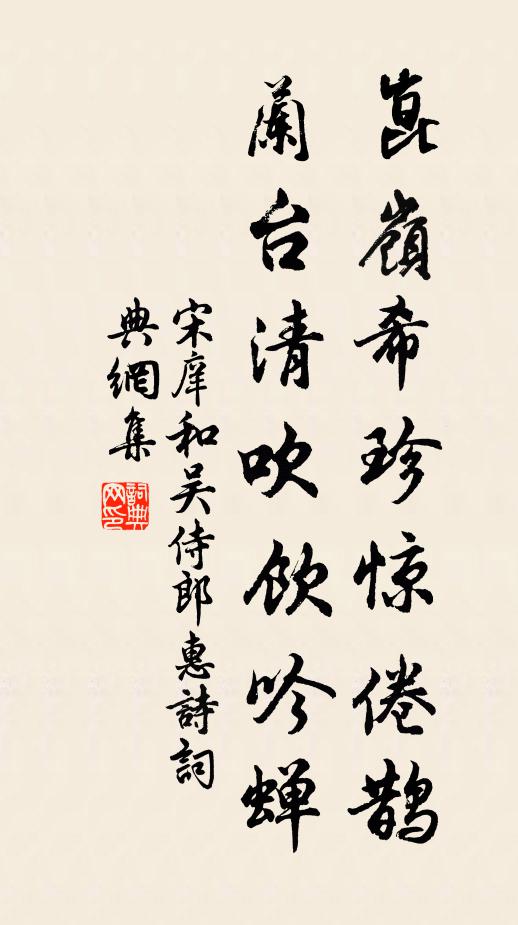 崑嶺希珍惊倦鵲
蘭台清吹飲吟蝉
宋庠和吴侍郎惠詩詞
典網集
詞典網印